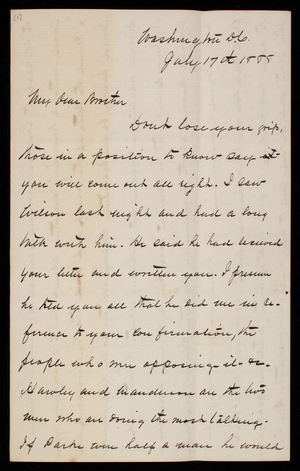 (1)
Washington D.C.
July 17th 1888
My Dear Brother
Dont lose your grip,
those in a position to know say
you will come out all right. I saw
Wilson last night and had a long
talk with him. He said he had received
your letter and written you. I presume
he told you all that he did me in re-
ference to your confirmation, the
people who are opposing it &c.
Hawley and Manderson are the two
men who are doing the most talking.
If were half a man he would